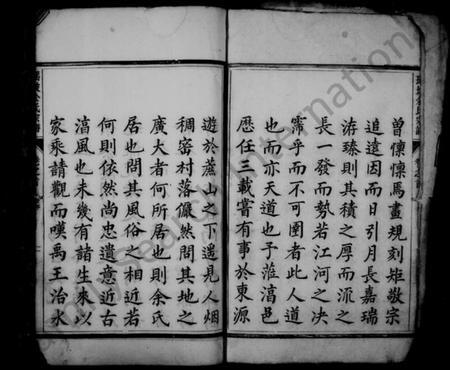 曾懔懔焉畫規刻矩敬宗
追遠因而日引月長嘉瑞
洊臻則其積之厚而流之
長一發而勢若江河之決
霈乎而不可圉者此人道
也而亦天道也予蒞滈邑
歷任三載嘗有事於東源
遊於蕉山之下遥見人烟
稠密村落儼然問其地之
廣大者何所居也則余氏
居也問其風俗之相近若
何則依然尚忠遺意近古
滈風也未幾有諸生來以
家乘請觀而嘆禹王治水